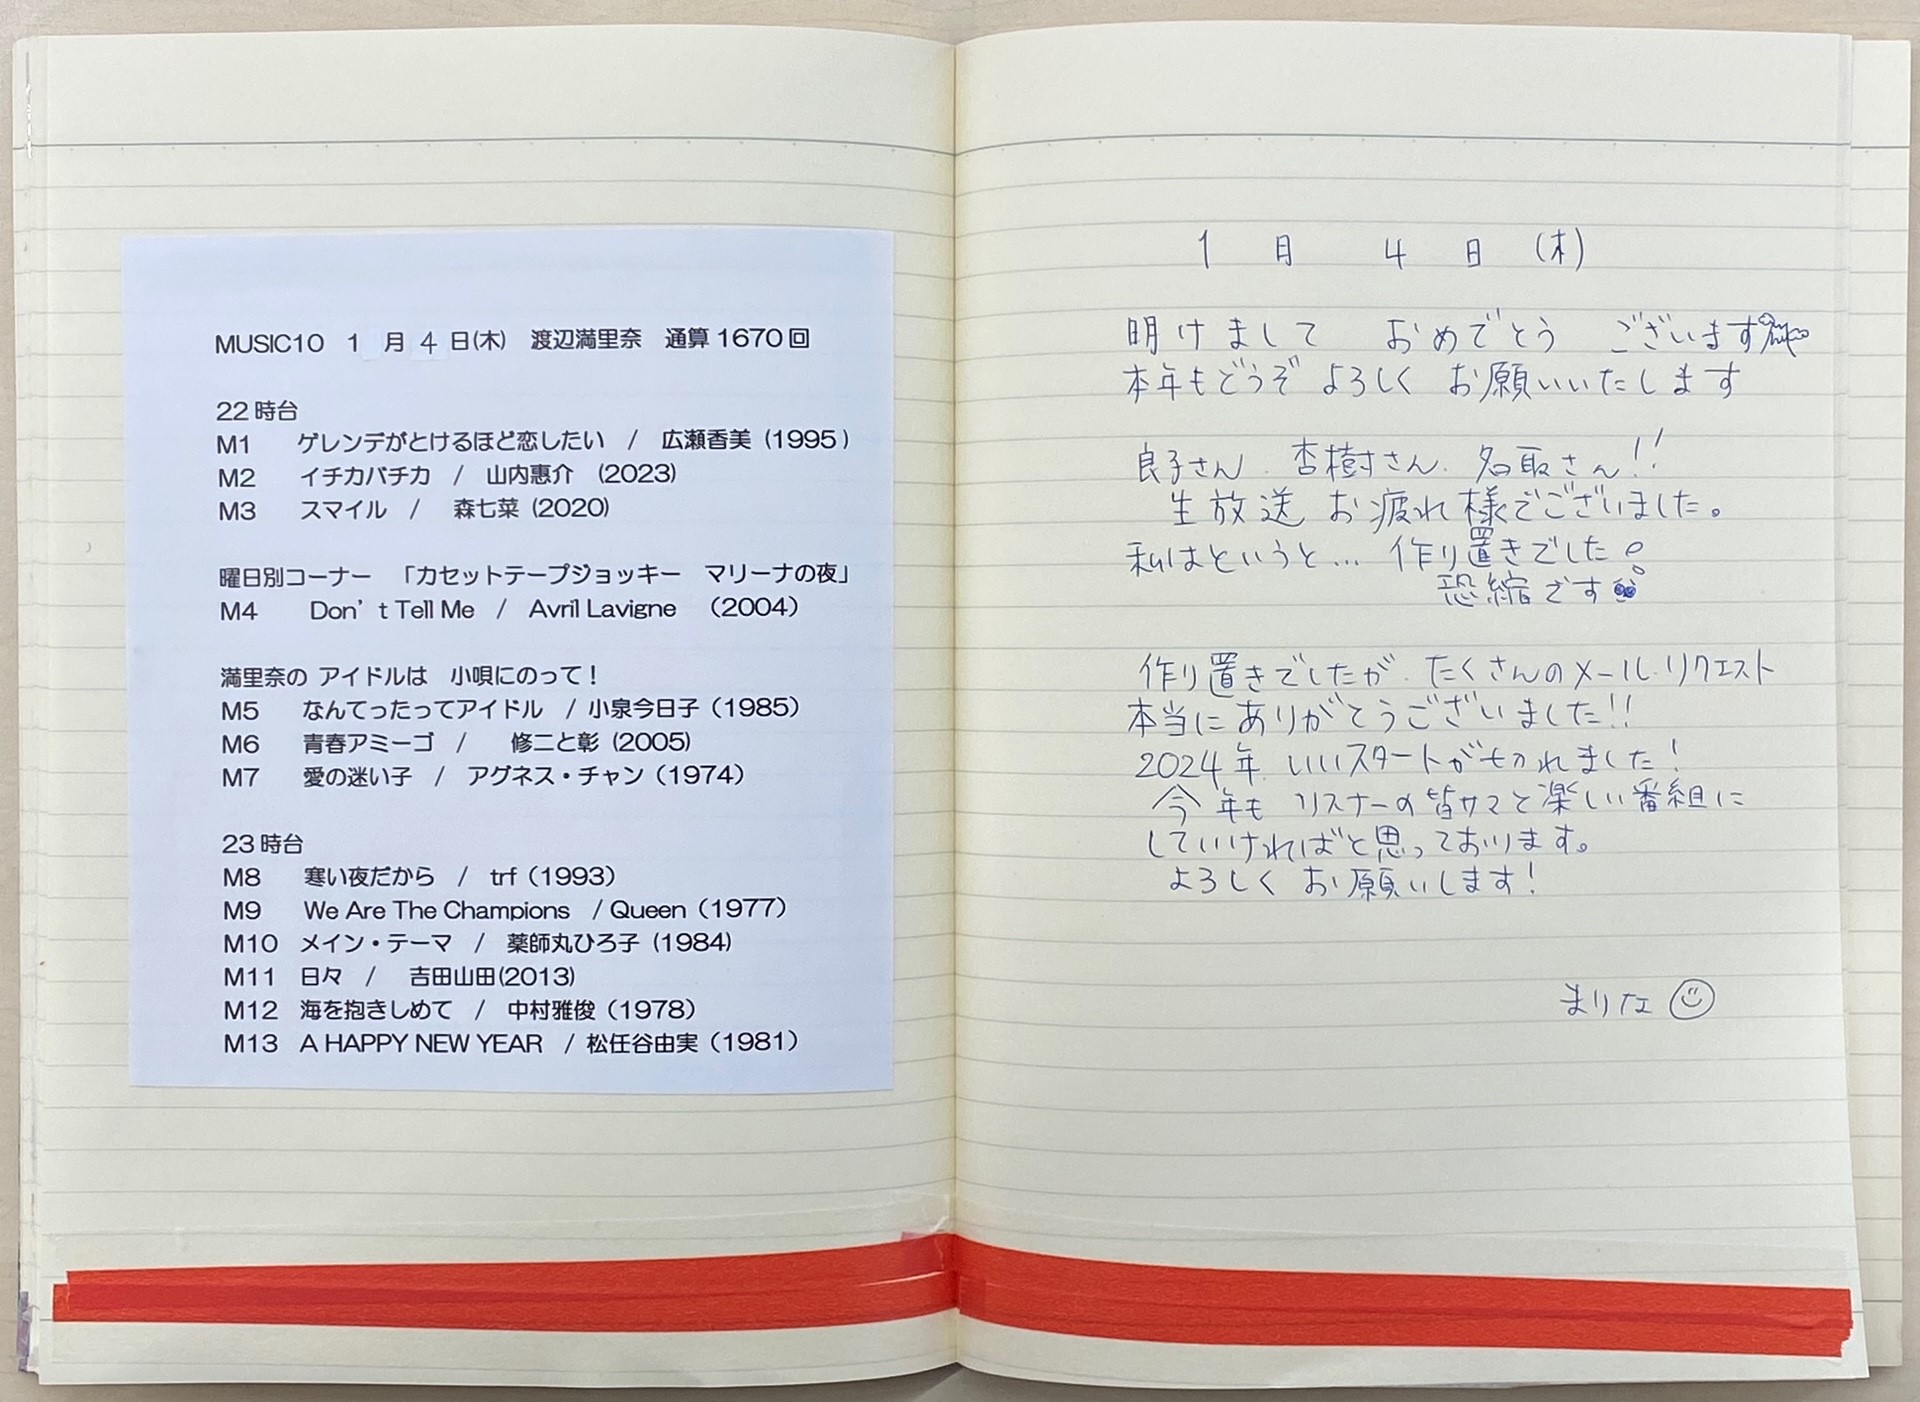 MUSIC10　1　月　4　日(木)　渡辺満里奈　通算1670回
22時台
M1　ゲレンデがとけるほど恋したい　/　広瀬香美（1995）
M2　イチカバチカ　/　山内惠介　（2023）
M3　スマイル　/　森七菜（2020）
曜日別コーナー　「カセットテープジョッキー　マリーナの夜」
M4　Don't Tell Me　/　Avril Lavigne　（2004）
満里奈の アイドルは　小唄にのって！
M5　なんてったってアイドル　/ 小泉今日子（1985）
M6　青春アミーゴ　/　修二と彰（2005）
M7　愛の迷い子　/　アグネス・チャン（1974）
23時台
M8　寒い夜だから　/　trf（1993）
M9　We Are The Champions　/ Queen（1977）
M10　メイン・テーマ　/　薬師丸ひろ子（1984）
M11　日々　/　吉田山田(2013)
M12　海を抱きしめて　/　中村雅俊（1978）
M13　A HAPPY NEW YEAR　/ 松任谷由実（1981）
1　月　4　日　(木)
明けまして　おめでとう　ございます
本年もどうぞ よろしく お願いいたします
良子さん、杏樹さん、名取さん!!
生放送 お疲れ様でございました。
私はというと… 作り置きでした
恐縮です
作り置きでしたが、たくさんのメール、リクエスト
本当にありがとうございました!!
2024年、いいスタートが切れました！
今年も リスナーの皆サマと楽しい番組に
していければと思っております。
よろしく お願いします！
まりな